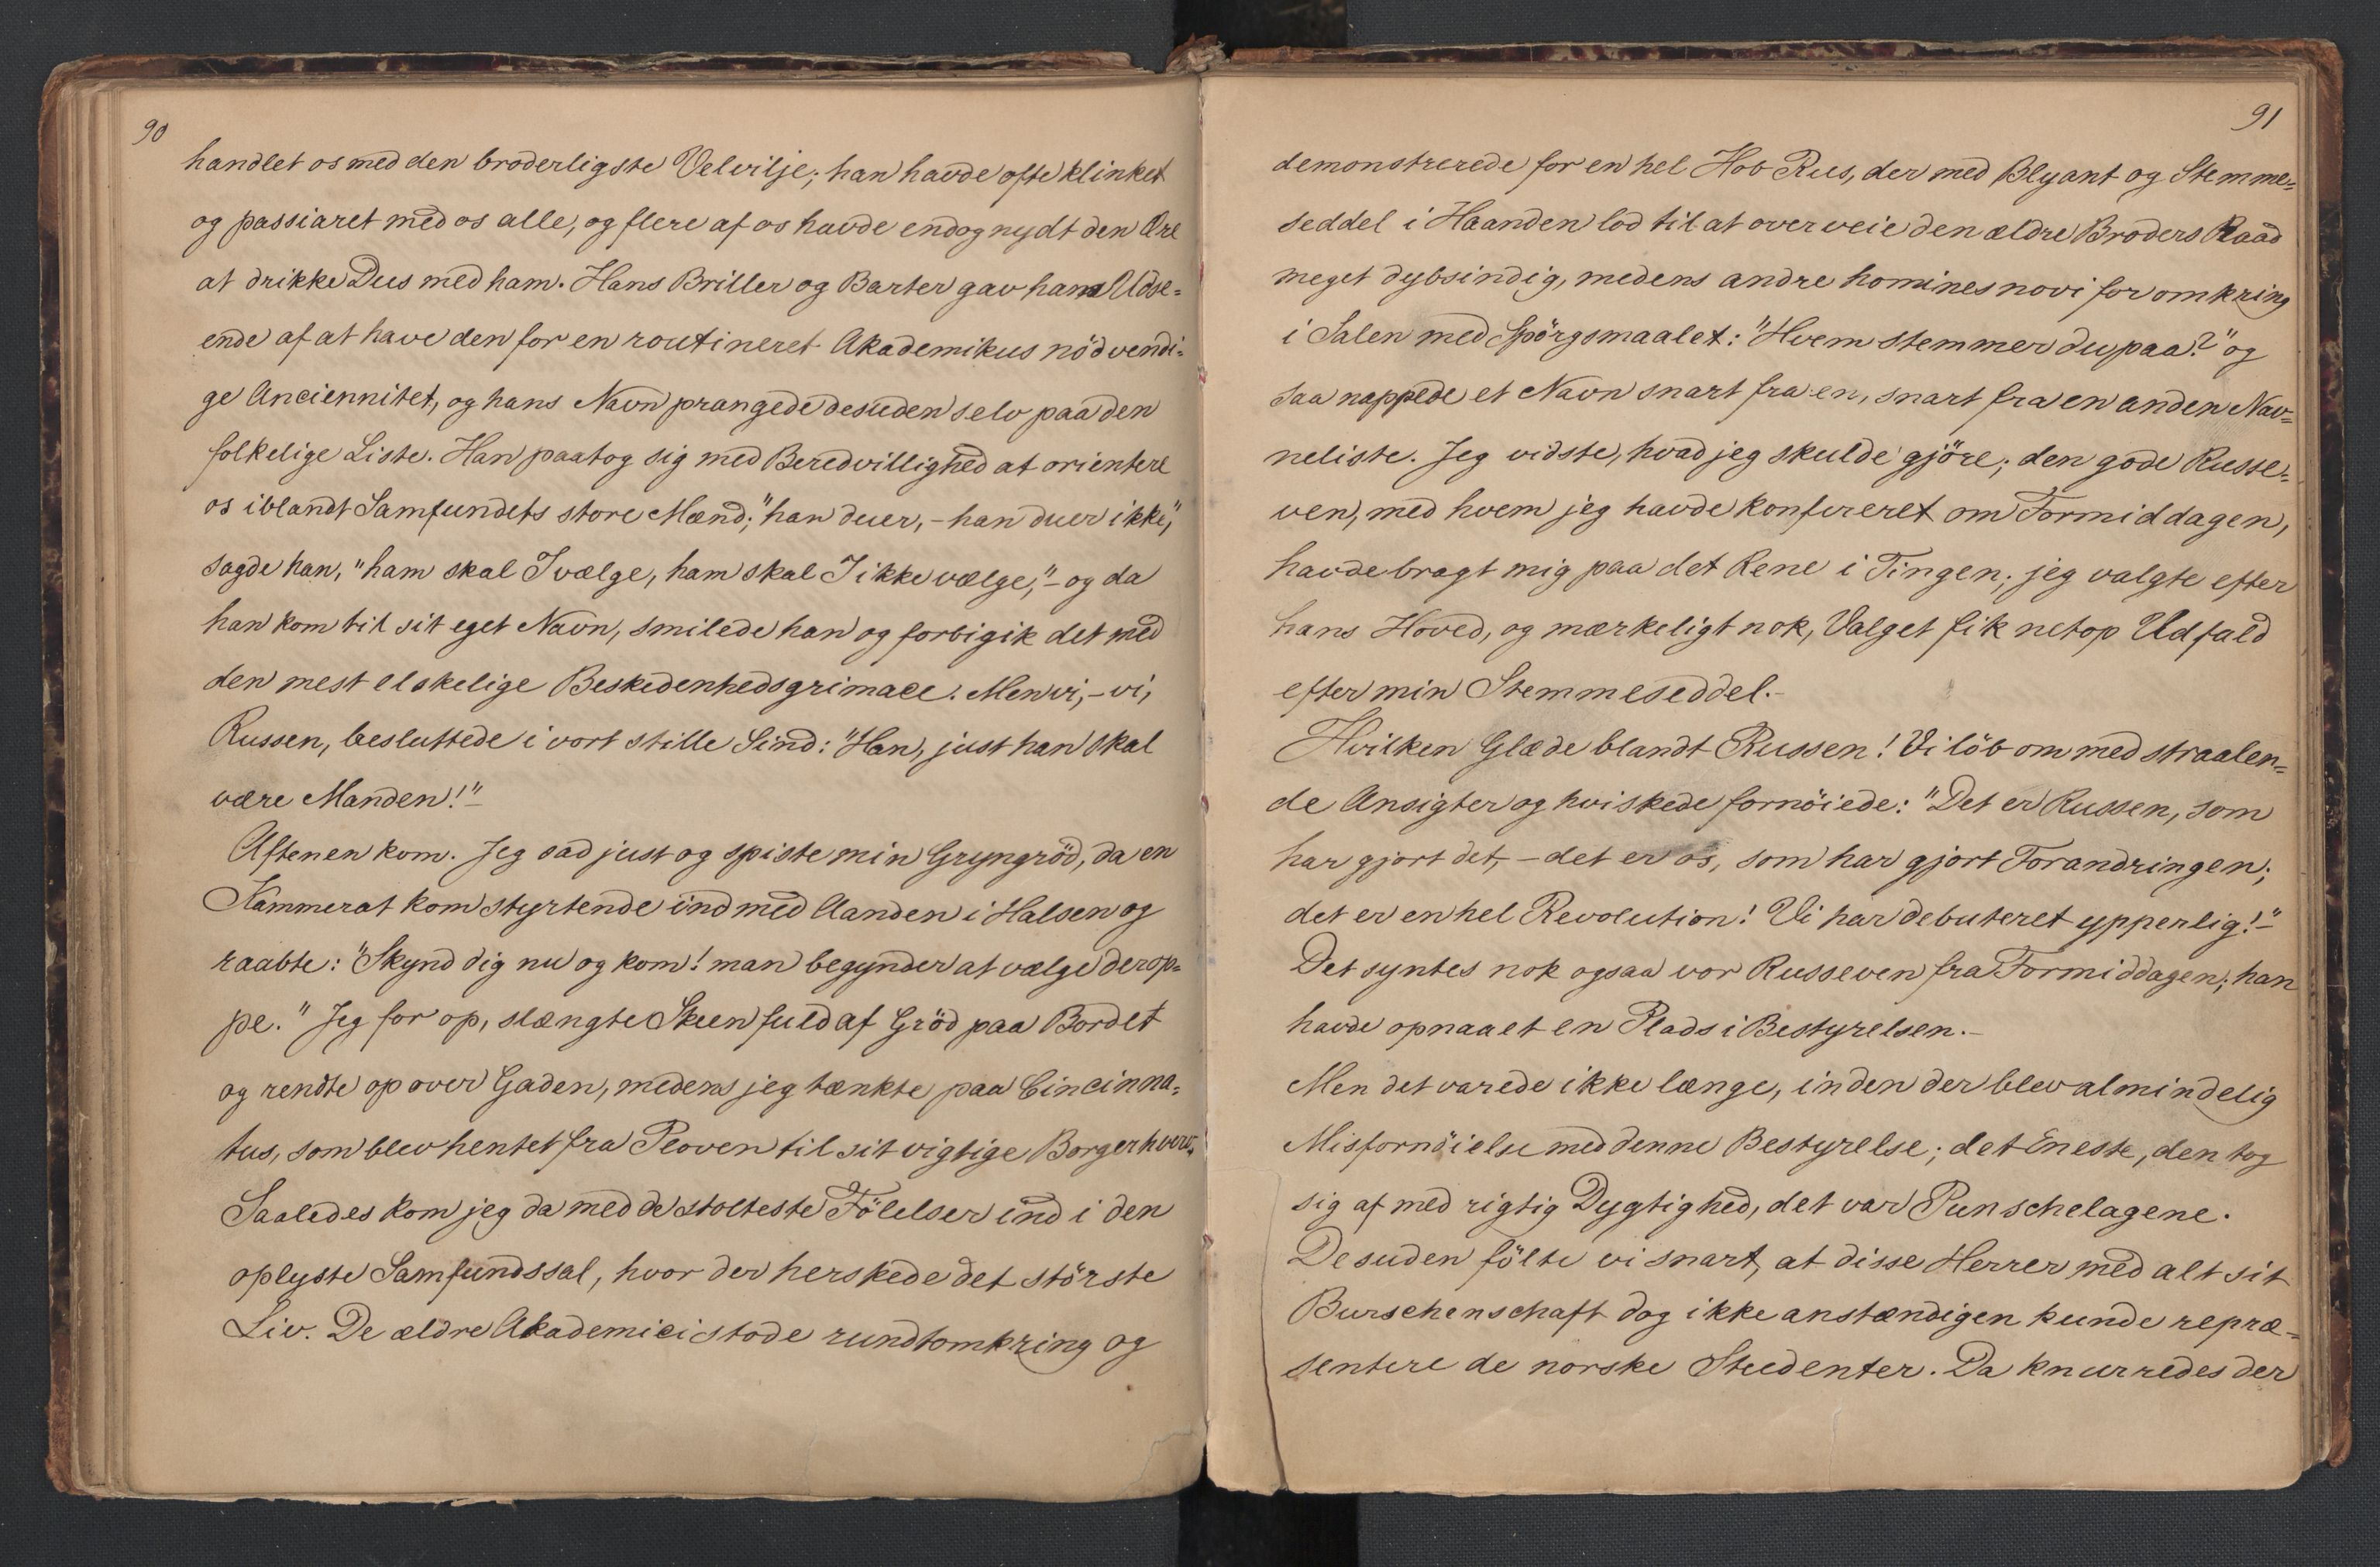 90
handlet os med den broderligste Velvilje; han havde ofte klinket
og passiaret med os alle, og flere af os havde endog nydt den Ære
at drikke Dus med ham. Hans Briller og Barter gav ham Udse=
ende af at have den for en routineret Akademikus nödvendi=
ge Anciennitet, og hans Navn prangede desuden selv paa den
folkelige Liste. Han paatog sig med Beredvillighed at orientere
os iblandt Samfundets store Mænd; "han duer, – han duer ikke,"
sagde han, "ham skal I vælge, ham skal I ikke vælge," – og da
han kom til sit eget Navn, smilede han og forbigik det med
den mest elskelige Beskedenhedsgrimace. Men vi, – vi,
Russen, besluttede i vort stille Sind: "Han, just han skal
være Manden!" –
Aftenen kom. Jeg sad just og spiste min Gryngröd, da en
Kammerat kom styrtende ind med Aanden i Halsen og
raabte: "Skynd dig nu og kom! man begynder at vælge derop=
pe." Jeg for op, slængte Skeen fuld af Gröd paa Bordet
og rendte op over Gaden, medens jeg tænkte paa Cincinna=
tus, som blev hentet fra Ploven til sit vigtige Borgerhverv.
Saaledes kom jeg da med de stolteste Fölelser ind i den
oplyste Samfundssal, hvor der herskede det störste
Liv. De ældre Akademici stode rundtomkring og
91
demonstrerede for en hel Hob Rus, der med Blyant og Stemme=
seddel i Haanden lod til at overveie den ældre Broders Raad
meget dybsindig, medens andre homines novi for omkring
i Salen med Spörgsmaalet: "Hvem stemmer du paa?" og
saa nappede et Navn snart fra en, snart fra en anden Nav=
neliste. Jeg vidste, hvad jeg skulde gjöre; den gode Russe=
ven, med hvem jeg havde konfereret om Formiddagen,
havde bragt mig paa det Rene i Tingen; jeg valgte efter
hans Hoved, og mærkeligt nok, Valget fik netop Udfald
efter min Stemmeseddel. –
Hvilken Glæde blandt Russen! Vi löb om med straalen=
de Ansigter og hviskede fornöiede: "Det er Russen, som
har gjort det, – det er os, som har gjort Forandringen;
det er en hel Revolution! Vi har debuteret ypperlig!" –
Det syntes nok ogsaa vor Russeven fra Formiddagen; han
havde opnaaet en Plads i Bestyrelsen. –
Men det varede ikke længe, inden der blev almindelig
Misfornöielse med denne Bestyrelse; det Eneste, den tog
sig af med rigtig Dygtighed, det var Punschelagene.
Desuden fölte vi snart, at disse Herrer med alt sit
Burschenschaft dog ikke anstændigen kunde repræ=
sentere de norske Studenter. Da knurredes der